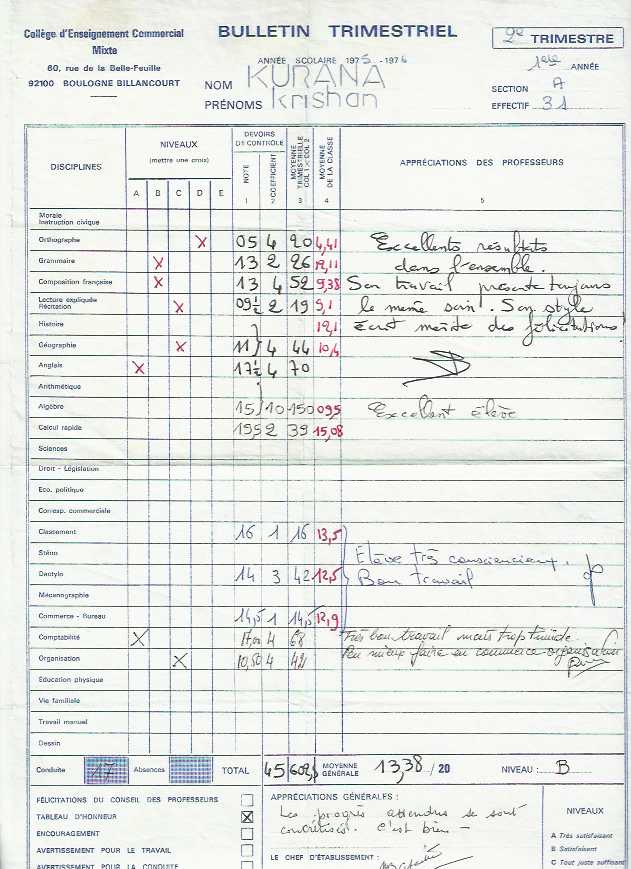 Collège d'Enseignement Commercial
Mixte
60, rue de la Belle-Feuille
92100 BOULOGNE BILLANCOURT
BULLETIN TRIMESTRIEL
ANNÉE SCOLAIRE 1975 - 1976
NOM KURANA
PRÉNOMS Krishan
2e TRIMESTRE
1ère ANNÉE
SECTION A
EFFECTIF 31
DISCIPLINES NIVEAUX (mettre une croix) DEVOIRS DE CONTRÔLE MOYENNE TRIMESTRIELLE COL 1 × COL 2 MOYENNE DE LA CLASSE APPRÉCIATIONS DES PROFESSEURS
A B C D E NOTE 1 COEFFICIENT 2 3 4 5
Morale
Instruction civique
Orthographe X 05 4 20 4,41 Excellents résultats
Grammaire X 13 2 26 12,11 dans l'ensemble.
Composition française X 13 4 52 9,38 Son travail présente toujours
Lecture expliquée
Récitation X 09½ 2 19 9,1 le même soin. Son style
Histoire 12,1 écrit mérite des félicitations!
Géographie X 11 4 44 10,4
Anglais X 17½ 4 70
Arithmétique
Algèbre 15 10 150 09,5 Excellent élève
Calcul rapide 19,5 2 39 15,08
Sciences
Droit - Législation
Eco. politique
Corresp. commerciale
Classement 16 1 16 13,5
Sténo Elève très consciencieux.
Dactylo 14 3 42 12,5 Bon travail
Mécanographie
Commerce - Bureau 14,5 1 14,5 12,9
Comptabilité X 17,00 4 68 Très bon travail mais trop timide.
Organisation X 10,50 4 42 Peu mieux faire en commerce-organisation
Education physique
Vie familiale
Travail manuel
Dessin
Conduite 17 Absences TOTAL 45 602,5 MOYENNE GÉNÉRALE 13,38 / 20 NIVEAU : B
FÉLICITATIONS DU CONSEIL DES PROFESSEURS
TABLEAU D'HONNEUR X
ENCOURAGEMENT
AVERTISSEMENT POUR LE TRAVAIL
AVERTISSEMENT POUR LA CONDUITE
APPRÉCIATIONS GÉNÉRALES :
Les progrès attendus se sont
concrétisés. C'est bien -
LE CHEF D'ÉTABLISSEMENT :
NIVEAUX
A Très satisfaisant
B Satisfaisant
C Tout juste suffisant